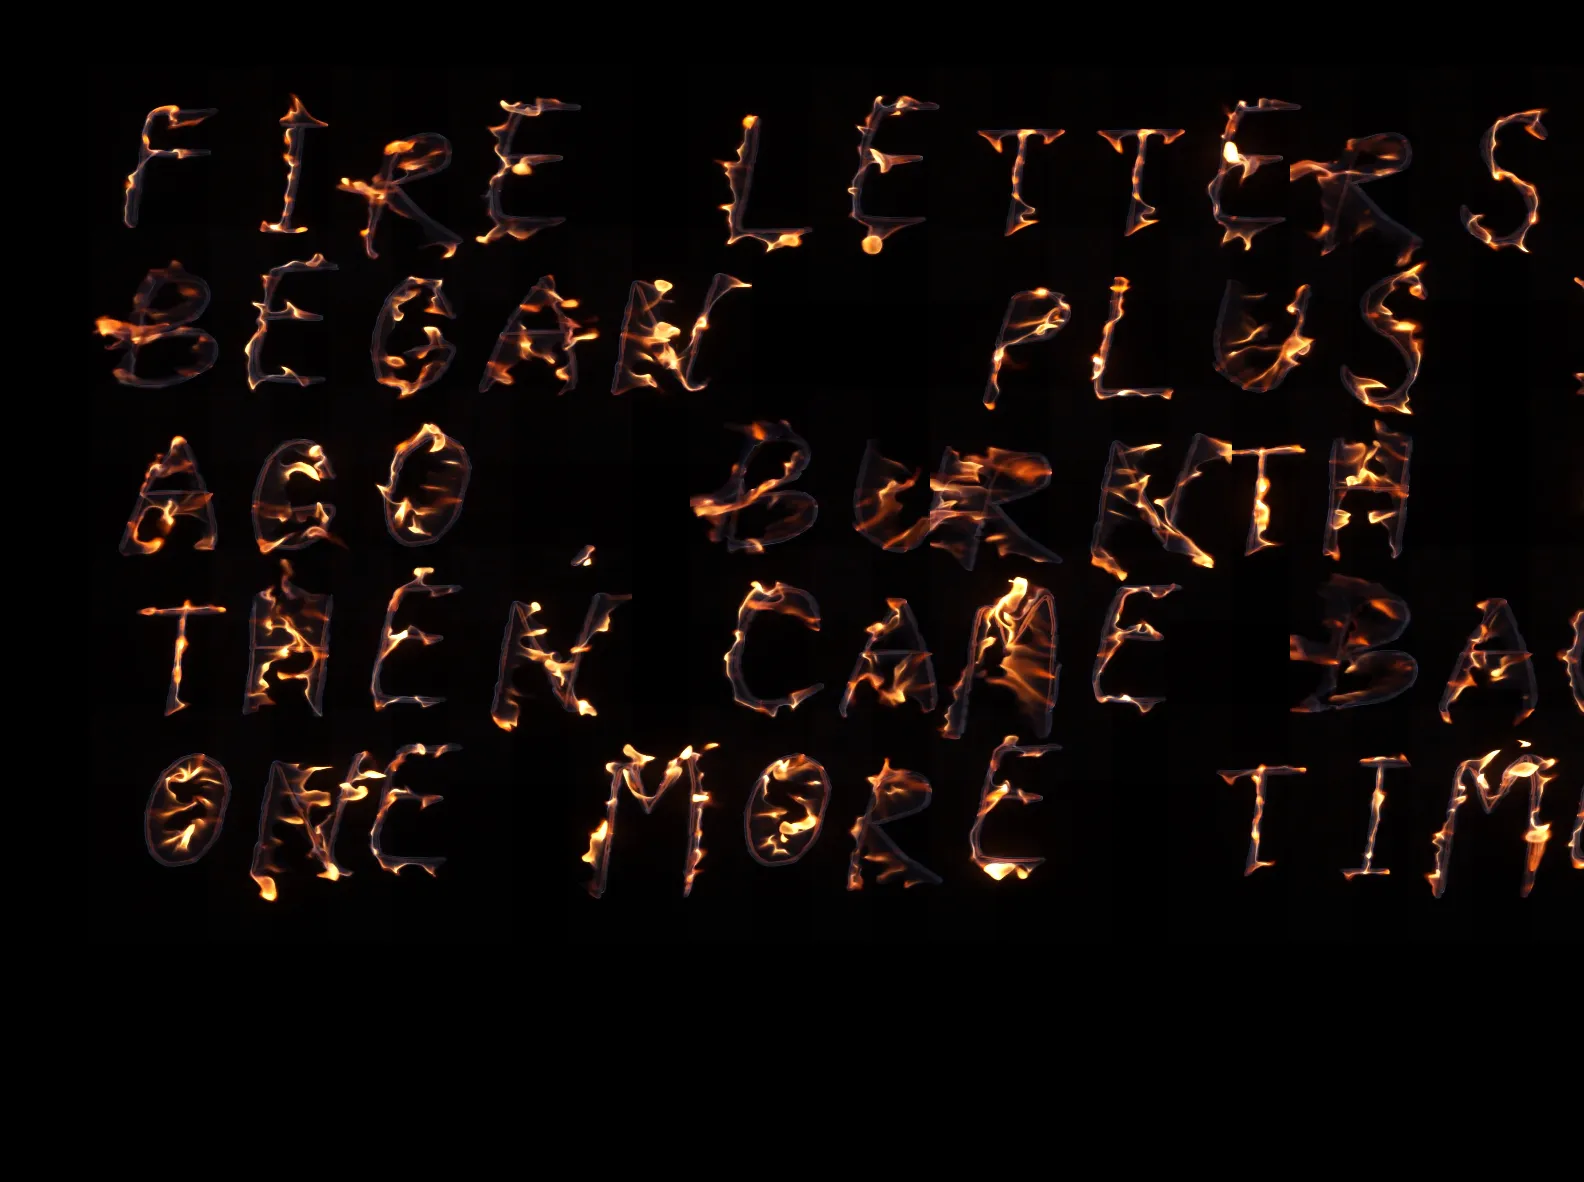 FIRE LETTERS
BEGAN PLUS
AGO BURNTH
THEN CAME BA
ONE MORE TIM